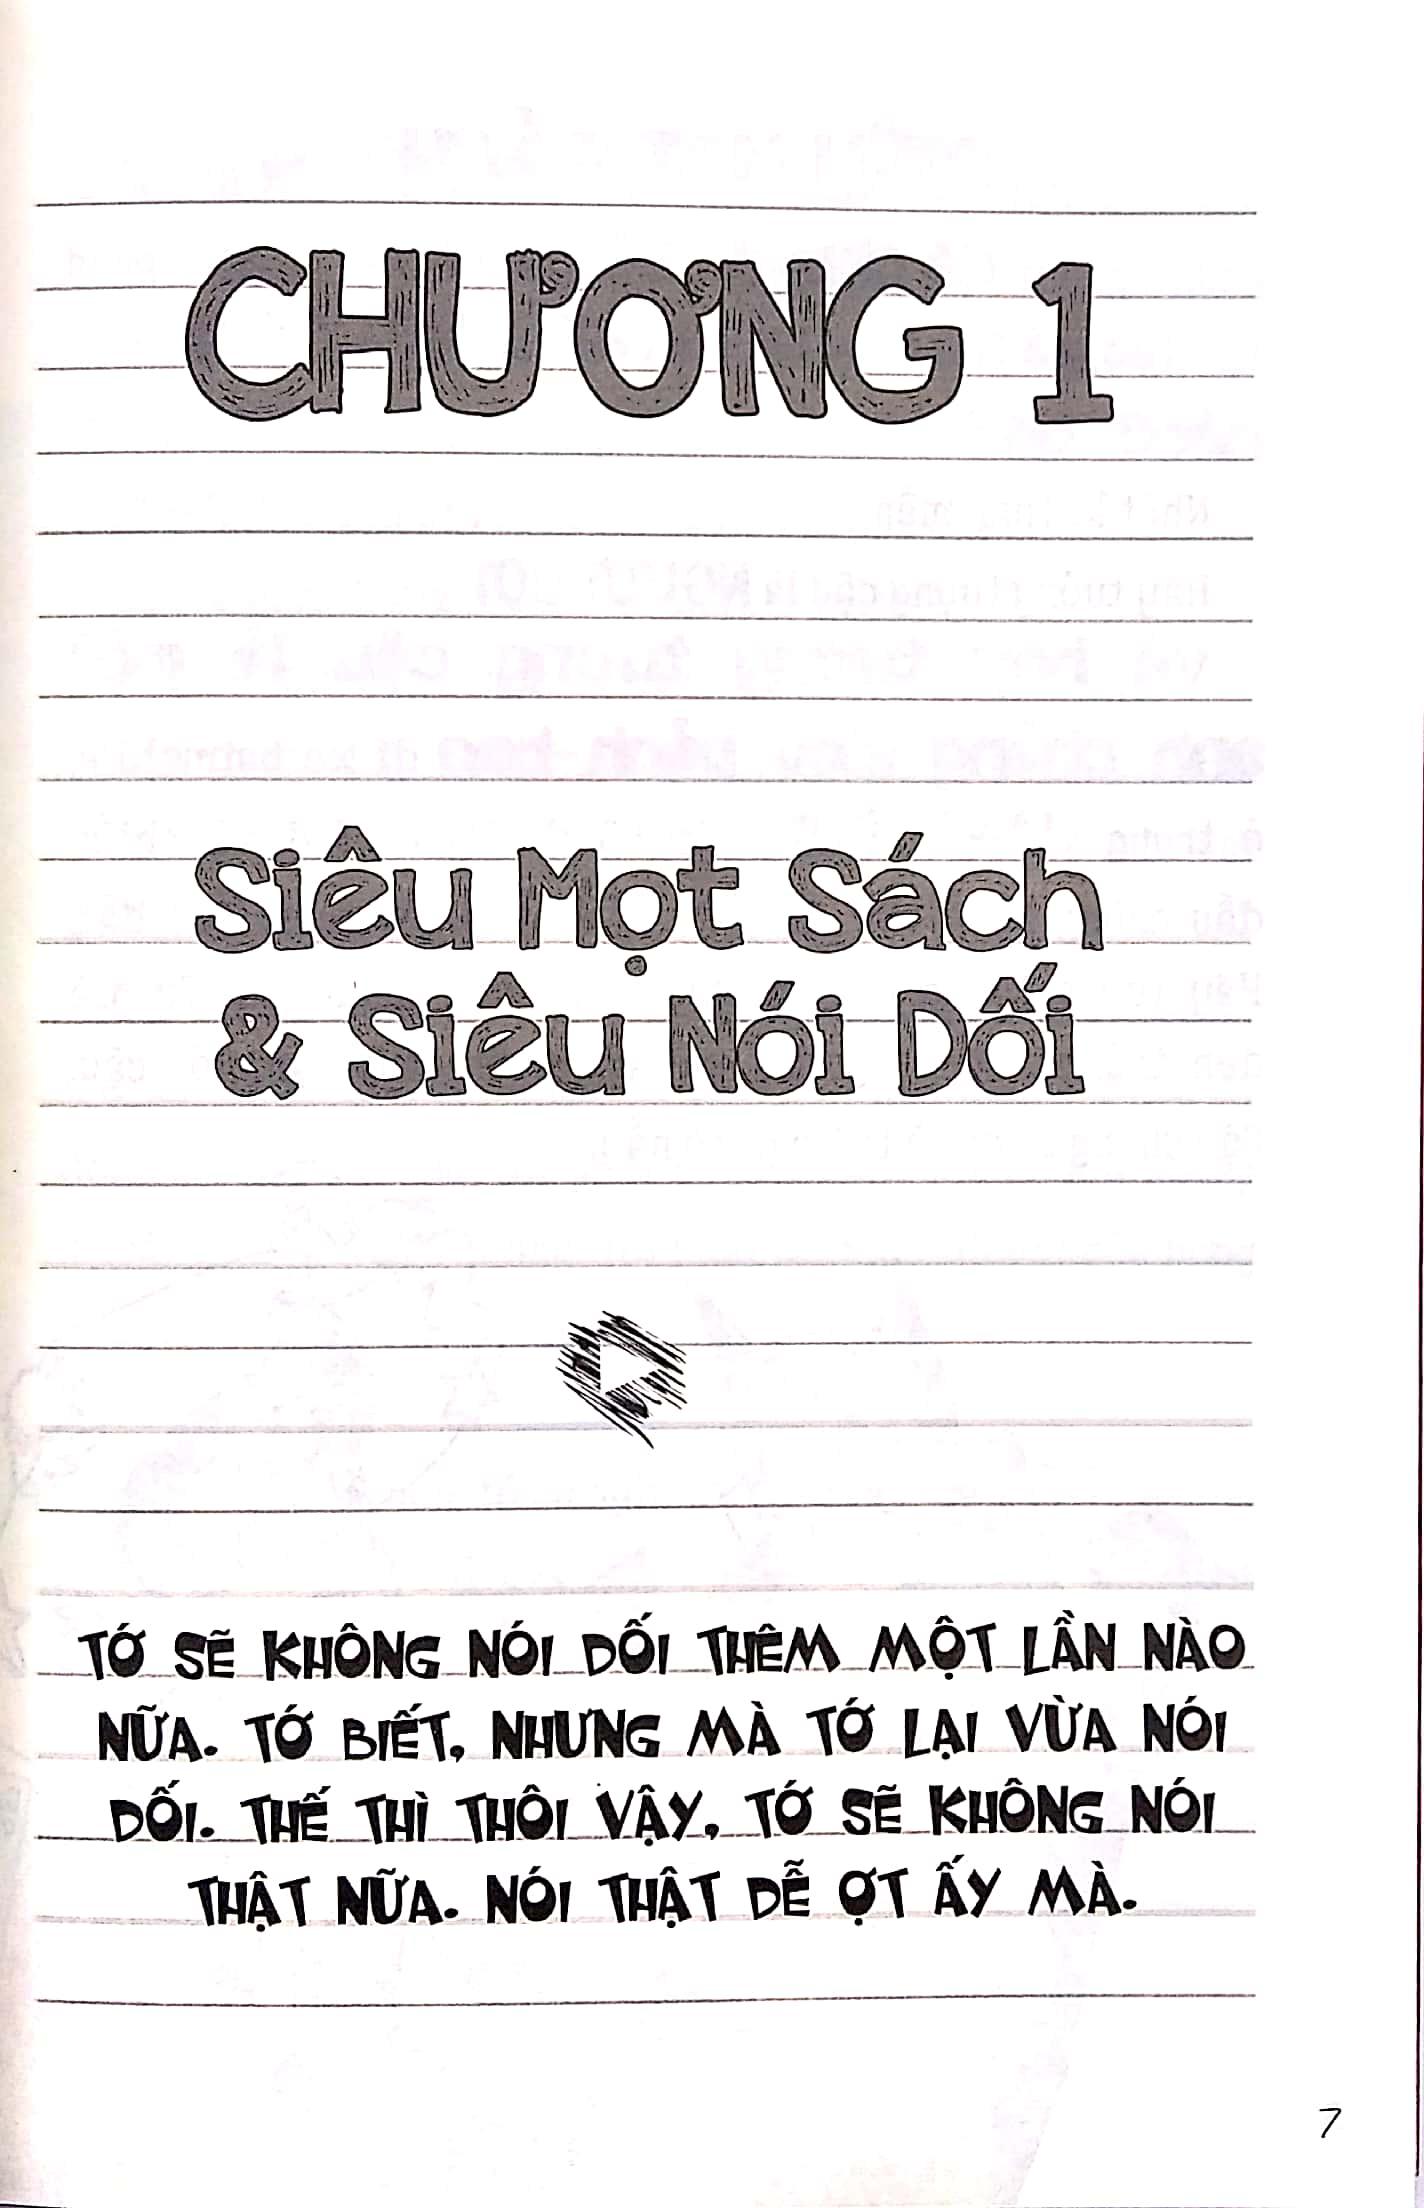 CHƯƠNG 1
Siêu Mọt Sách
& Siêu Nói Dối
TỚ SẼ KHÔNG NÓI DỐI THÊM MỘT LẦN NÀO
NỮA. TỚ BIẾT, NHƯNG MÀ TỚ LẠI VỪA NÓI
DỐI. THẾ THÌ THÔI VẬY, TỚ SẼ KHÔNG NÓI
THẬT NỮA. NÓI THẬT DỄ ỢT ẤY MÀ.
7